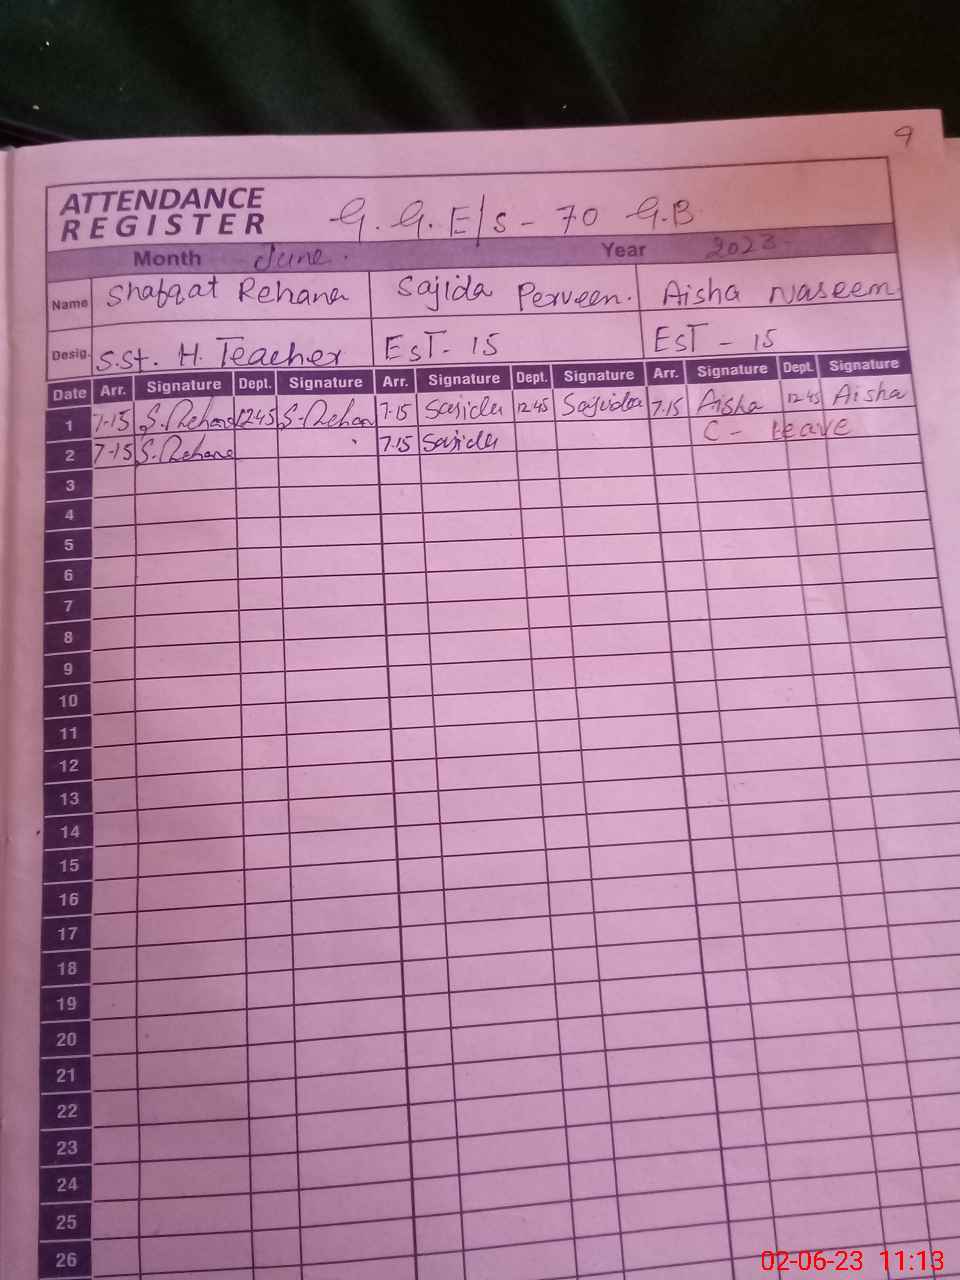 9
ATTENDANCE
REGISTER G.G.E/S - 70 G.B
Month June. Year 2023
Name Shafqat Rehana Sajida Perveen. Aisha Naseem
Desig. S.St. H. Teacher EST - 15 EST - 15
Date Arr. Signature Dept. Signature Arr. Signature Dept. Signature Arr. Signature Dept. Signature
1 7-15 S.Rehana 12.45 S.Rehan 7.15 Sajida 12.45 Sajida 7.15 Aisha 12.45 Aisha
2 7-15 S.Rehana 7.15 Sajida C - Leave
3
4
5
6
7
8
9
10
11
12
13
14
15
16
17
18
19
20
21
22
23
24
25
26
02-06-23 11:13